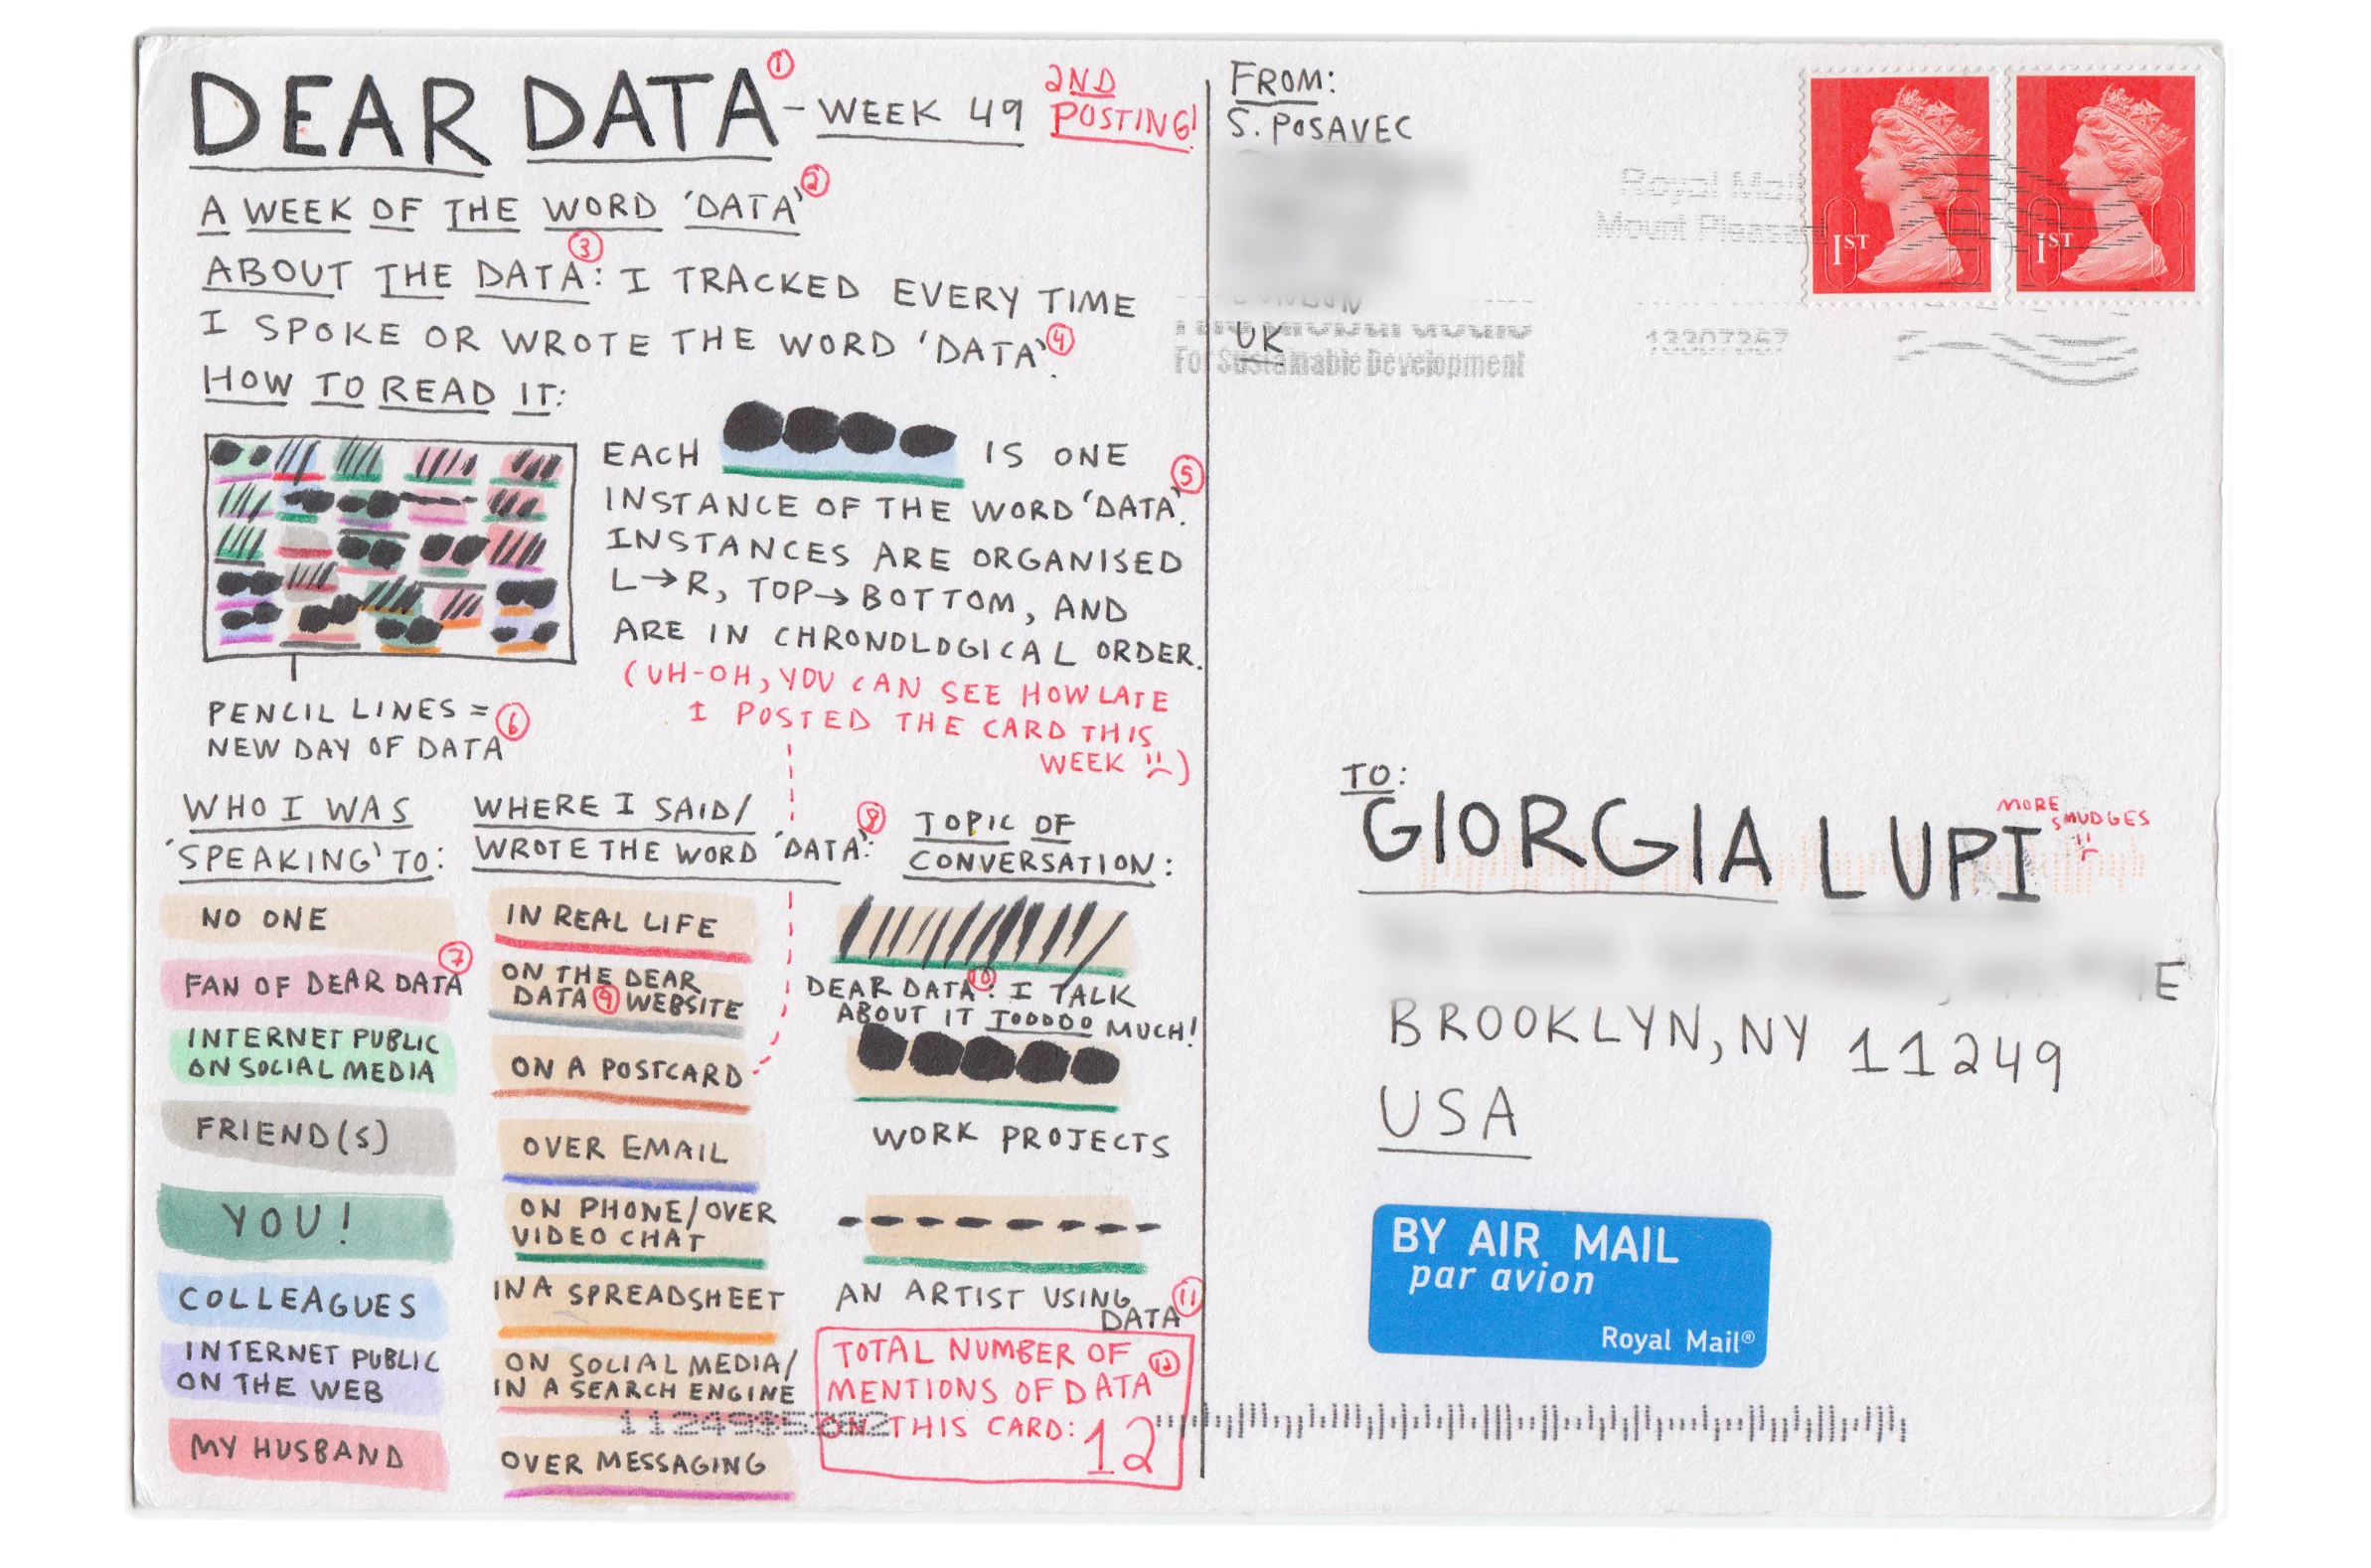 DEAR DATA ① - WEEK 49
2ND
POSTING!
A WEEK OF THE WORD 'DATA' ②
ABOUT THE DATA ③: I TRACKED EVERY TIME
I SPOKE OR WROTE THE WORD 'DATA' ④.
HOW TO READ IT:
EACH IS ONE
INSTANCE OF THE WORD 'DATA' ⑤.
INSTANCES ARE ORGANISED
L→R, TOP→BOTTOM, AND
ARE IN CHRONOLOGICAL ORDER.
(UH-OH, YOU CAN SEE HOW LATE
I POSTED THE CARD THIS
WEEK)
PENCIL LINES =
NEW DAY OF DATA ⑥
WHO I WAS
'SPEAKING' TO:
NO ONE
FAN OF DEAR DATA ⑦
INTERNET PUBLIC
ON SOCIAL MEDIA
FRIEND(S)
YOU!
COLLEAGUES
INTERNET PUBLIC
ON THE WEB
MY HUSBAND
WHERE I SAID/
WROTE THE WORD 'DATA' ⑧:
IN REAL LIFE
ON THE DEAR
DATA ⑨ WEBSITE
ON A POSTCARD
OVER EMAIL
ON PHONE/OVER
VIDEO CHAT
IN A SPREADSHEET
ON SOCIAL MEDIA/
IN A SEARCH ENGINE
OVER MESSAGING
TOPIC OF
CONVERSATION:
DEAR DATA ⑩: I TALK
ABOUT IT TOOOOO MUCH!
WORK PROJECTS
AN ARTIST USING
DATA ⑪
TOTAL NUMBER OF
MENTIONS OF DATA ⑫
ON THIS CARD: 12
FROM:
S. POSAVEC
UK
Royal Mail
Mount Pleasant
For Sustainable Development
13307367
1ST
1ST
TO:
GIORGIA LUPI
MORE
SMUDGES
E
BROOKLYN, NY 11249
USA
BY AIR MAIL
par avion
Royal Mail®